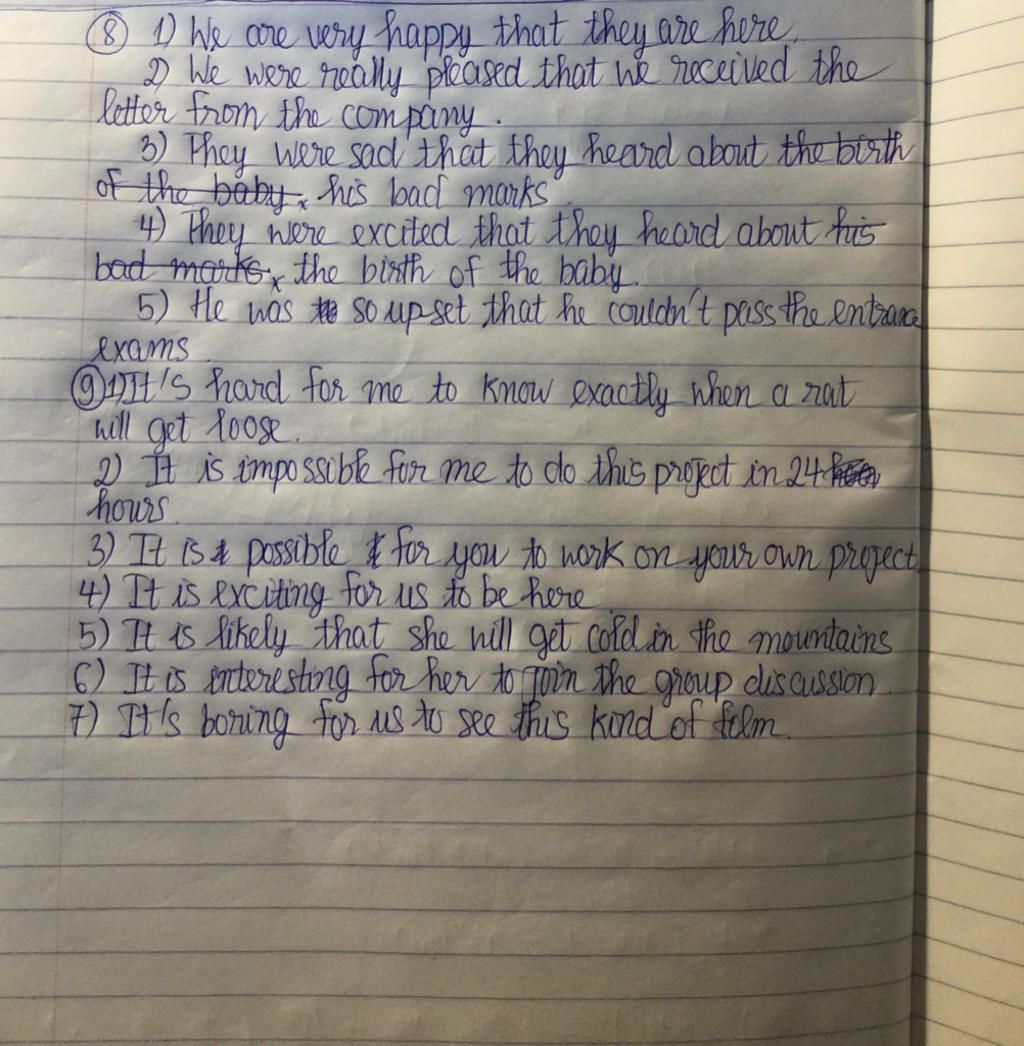 ⑧ 1) We are very happy that they are here.
2) We were really pleased that we received the
letter from the company.
3) They were sad that they heard about the birth
of the baby. x his bad marks
4) They were excited that they heard about his
bad marks. x the birth of the baby.
5) He was so upset that he couldn't pass the entrance
exams.
⑨ 1) It's hard for me to know exactly when a rat
will get loose.
2) It is impossible for me to do this project in 24
hours.
3) It is possible for you to work on your own project.
4) It is exciting for us to be here
5) It is likely that she will get cold in the mountains
6) It is interesting for her to join the group discussion.
7) It's boring for us to see this kind of film.